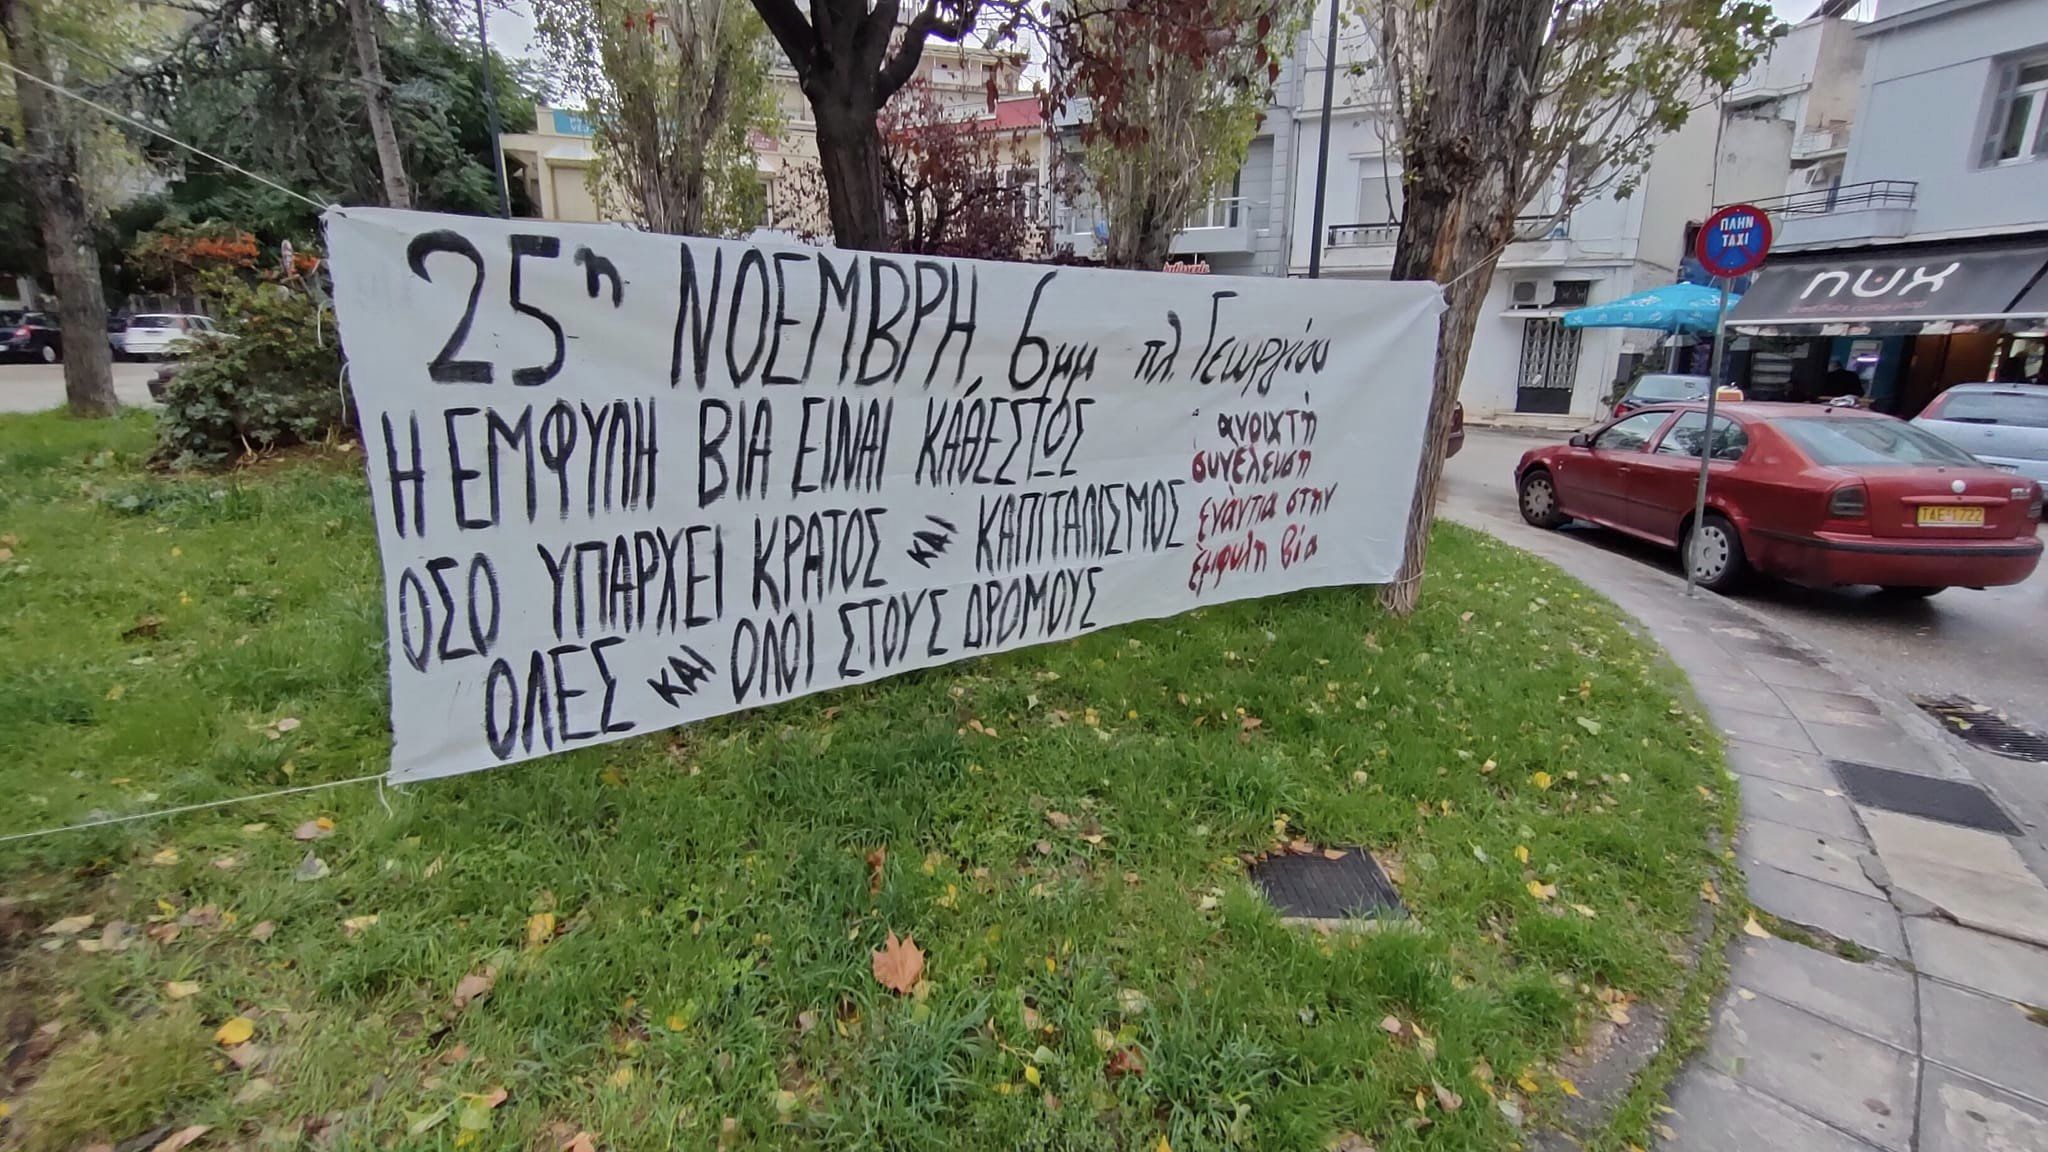 25η ΝΟΕΜΒΡΗ, 6μμ πλ. Γεωργίου
Η ΕΜΦΥΛΗ ΒΙΑ ΕΙΝΑΙ ΚΑΘΕΣΤΩΣ
ΟΣΟ ΥΠΑΡΧΕΙ ΚΡΑΤΟΣ ΚΑΙ ΚΑΠΙΤΑΛΙΣΜΟΣ
ΟΛΕΣ ΚΑΙ ΟΛΟΙ ΣΤΟΥΣ ΔΡΟΜΟΥΣ
ανοιχτή
συνέλευση
ενάντια στην
έμφυλη βία
ΠΛΗΝ
ΤΑΧΙ
nux
TAE·1722